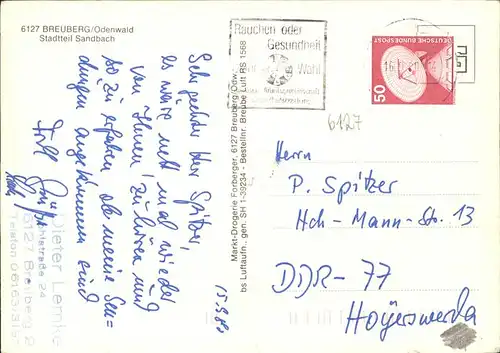 6127 BREUBERG/Odenwald
Stadtteil Sandbach
Rauchen oder
Gesundheit
Wahl
DEUTSCHE BUNDESPOST
50
6127
Markt-Drogerie Forberger, 6127 Breuberg/Odw.
bs Luftaufn., gen. SH 1-39234 - Bestellnr. Breube Luft RS 1568
Sehr geehrter Herr Spitzer,
es wäre nett mal wieder
von Ihnen zu hören und
so zu erfahren ob meine Sen=
dungen angekommen sind
15.9.80
Dieter
24
6127 Breuberg 2
Telefon 06163/31
Herrn
P. Spitzer
Hch-Mann-Str. 13
DDR-77
Hoyerswerda